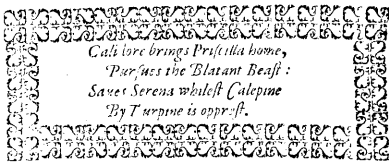 Calidore brings Priſcilla home,
Purſues the Blatant Beaſt :
Saues Serena whileſt Calepine
By Turpine is oppreſt.